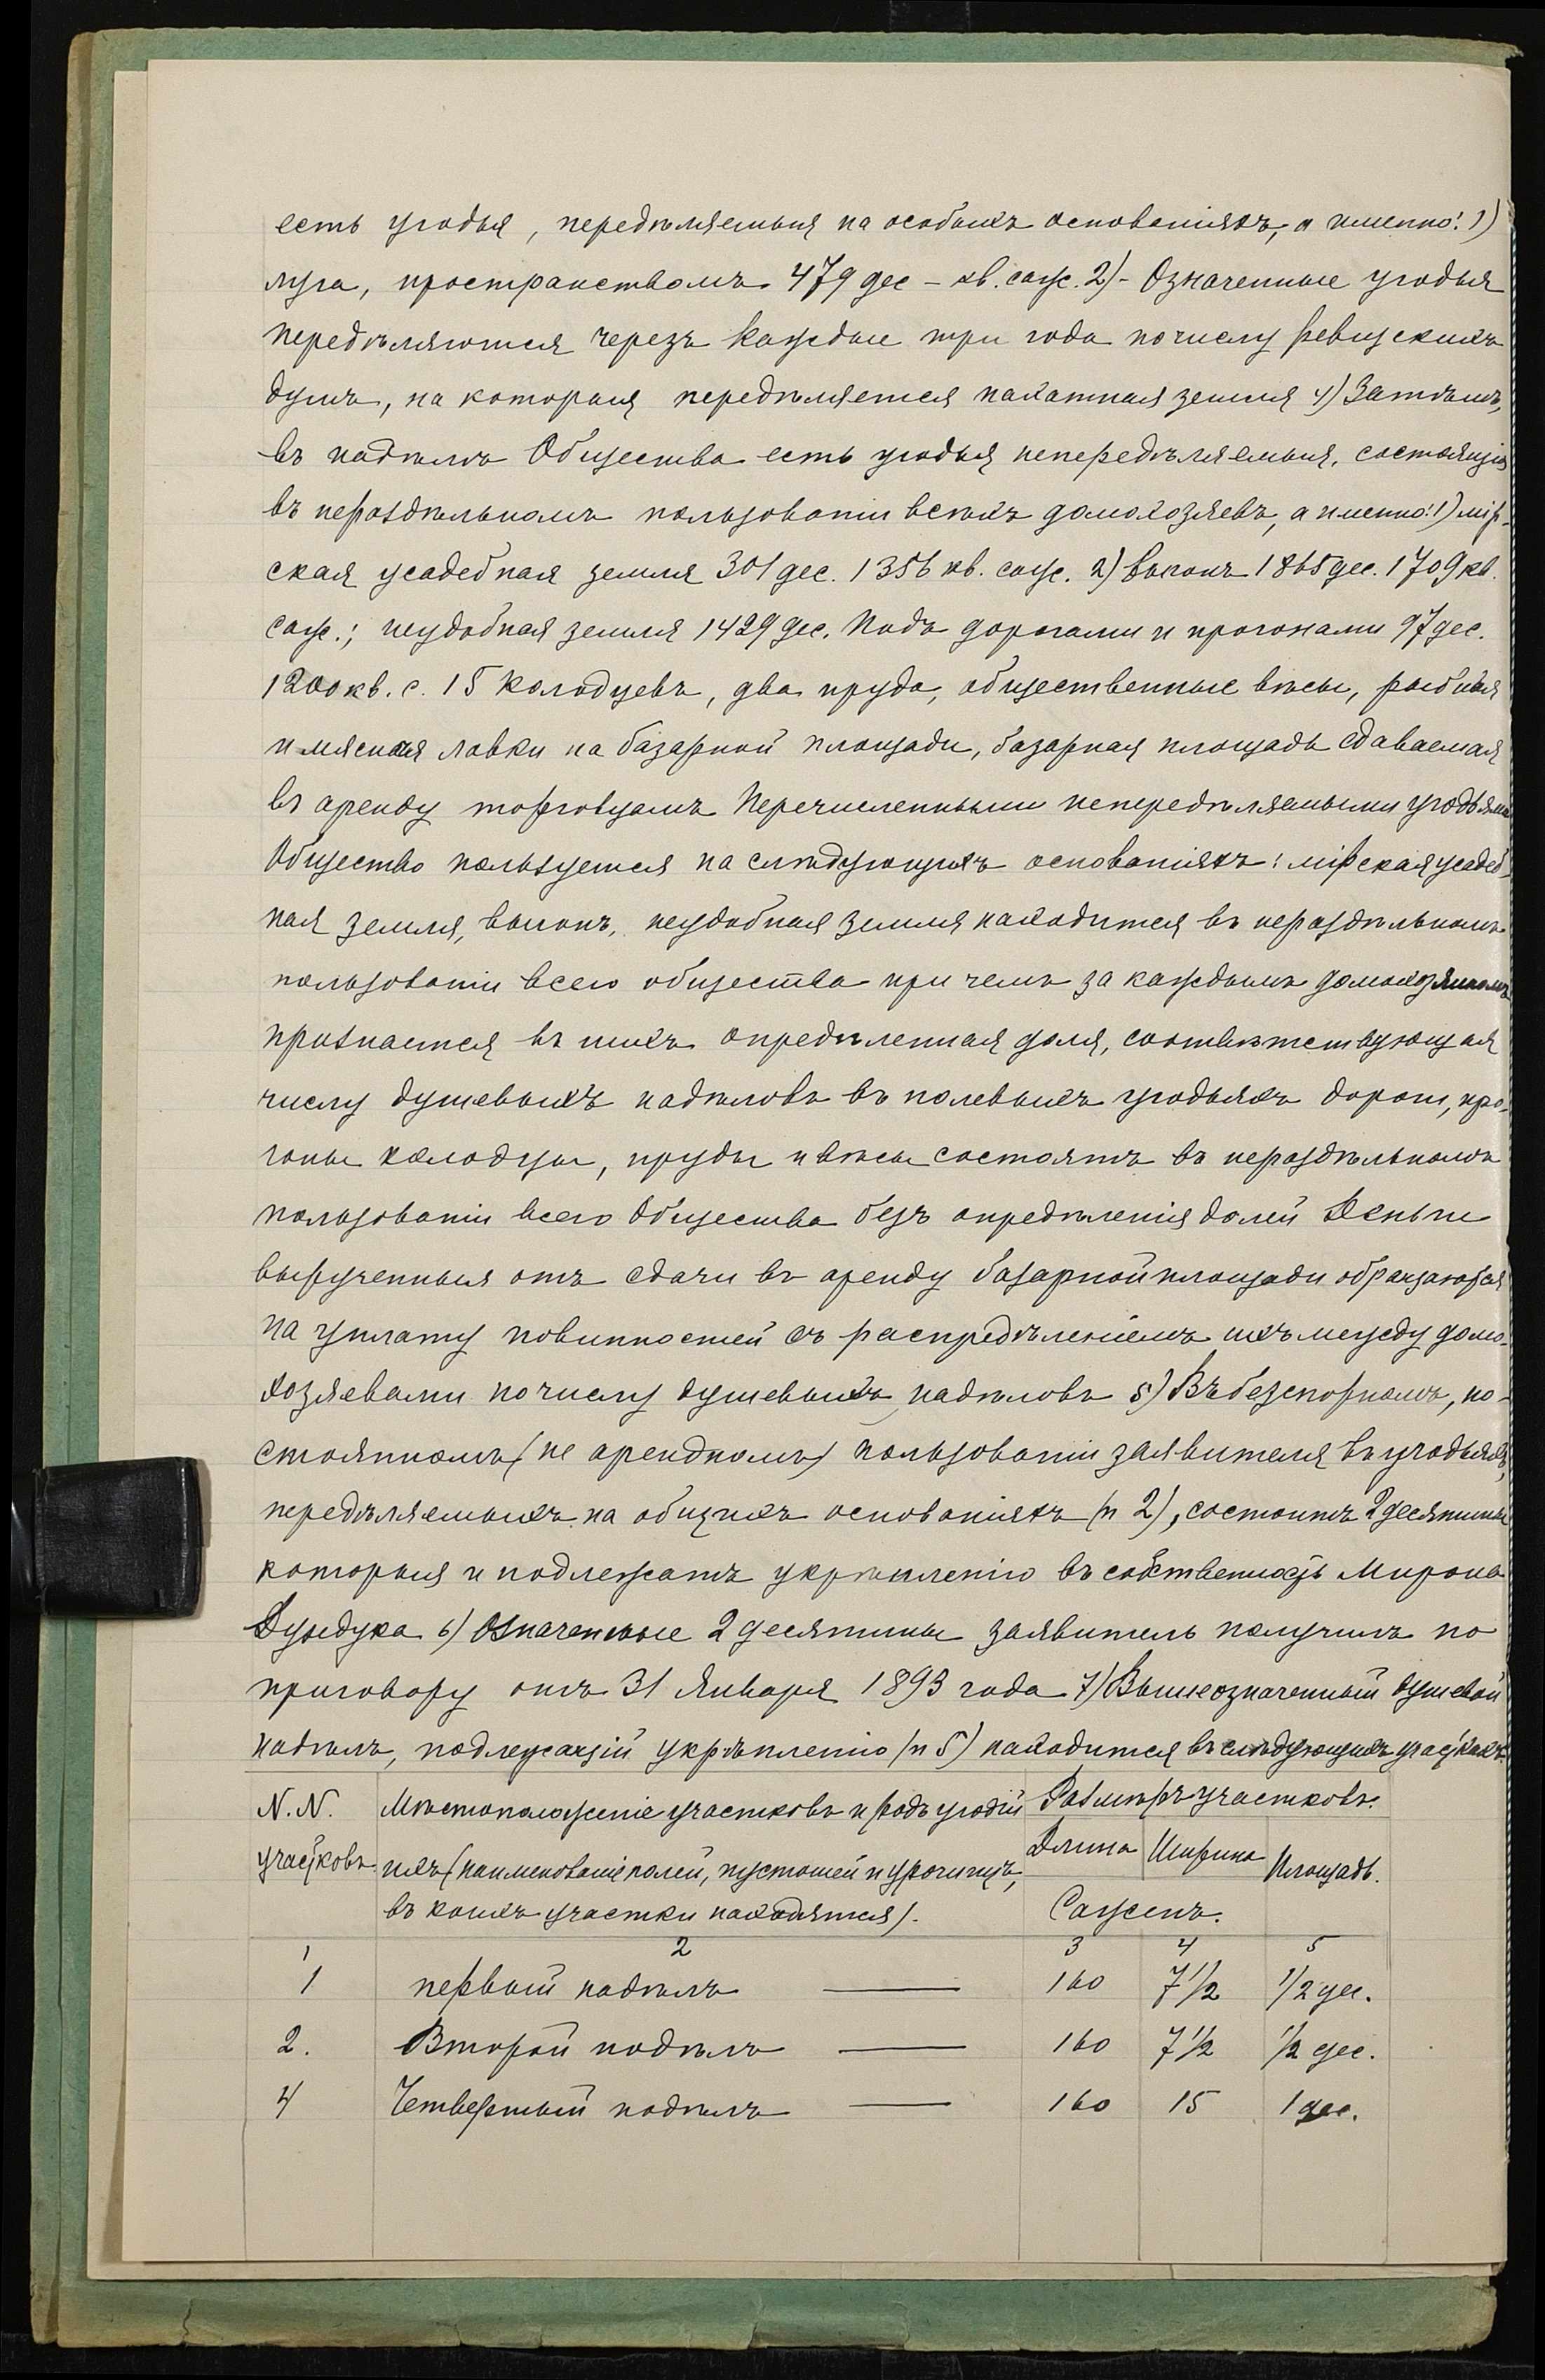 есть угодья, передѣляемыя на особыхъ основаніяхъ, а именно: 1)
луга, пространствомъ 479 дес – кв. саж. 2) - Означенные угодья
передѣляются черезъ каждые три года по числу ревизскихъ
душъ, на которыя передѣляется пахатная земля 4) Затѣмъ,
въ надѣлѣ Общества есть угодья непередѣляемыя, состоящія
въ нераздѣльномъ пользованіи всѣхъ домохозяевъ, а именно: 1) мір-
ская усадебная земля 301 дес. 1356 кв. саж. 2) выгонъ 1865 дес. 1709 кв.
саж.; неудобная земля 1429 дес. Подъ дорогами и прогонами 97 дес.
1200 кв. с. 15 колодцевъ, два пруда, общественные вѣсы, рыбная
и мясная лавки на базарной площади, базарная площадь сдаваемая
въ аренду торговцамъ Перечисленными непередѣляемыми угодьями
Общество пользуется на слѣдующихъ основаніяхъ: мірская усадеб-
ная земля, выгонъ, неудобная земля находится въ нераздѣльномъ
пользованіи всего общества при чемъ за каждымъ домохозяиномъ
признается въ нихъ опредѣленная доля, соотвѣтствующая
числу душевыхъ надѣловъ въ полевыхъ угодьяхъ дороги, про-
гоны колодцы, пруды и вѣсы состоятъ въ нераздѣльномъ
пользованіи всего Общества безъ опредѣленія долей Деньги
вырученныя отъ сдачи въ аренду базарной площади обращаются
на уплату повинностей съ распредѣленіемъ ихъ между домо-
хозяевами по числу душевыхъ надѣловъ 5) Въ безспорномъ, по-
стоянномъ (не арендномъ) пользованіи заявителя въ угодьяхъ,
передѣляемыхъ на общихъ основаніяхъ (п 2), состоитъ 2 десятины
которыя и подлежатъ укрѣпленію въ собственность Мирона
Дундука 6) Означенные 2 десятины заявитель получилъ по
приговору отъ 31 Января 1893 года 7) Вышеозначенный душевой
надѣлъ, подлежащій укрѣпленію (п 5) находится въ слѣдующихъ участкахъ:
N.N. участковъ
Мѣстоположеніе участковъ и родъ угодій
ихъ (наименованіе полей, пустошей и урочищъ,
въ коихъ участки находятся).
Размѣръ участковъ.
Длина Ширина Площадь.
Саженъ.
1 2 3 4 5
1 первый надѣлъ — 160 7 1/2 1/2 дес.
2. Второй надѣлъ — 160 7 1/2 1/2 дес.
4 Четвертый надѣлъ — 160 15 1 дес.